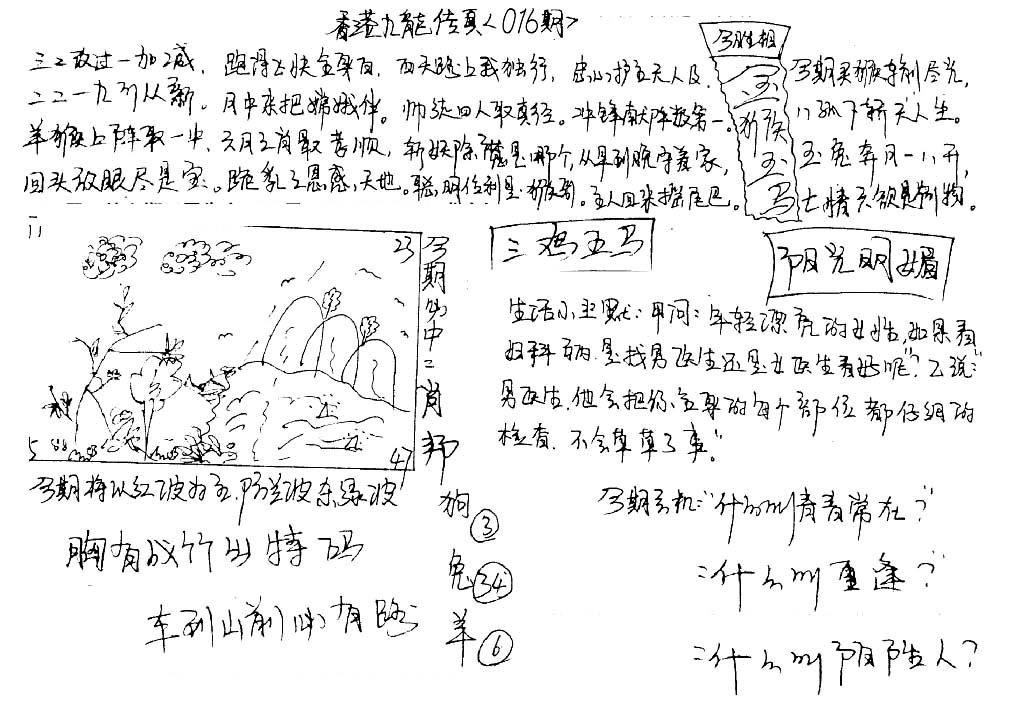 香港九龙传真<016期>
三二放过一加减，跑得飞快全身白，西天路上我独行，忠心护主天人及
二二一九引从新。月中来把嫦娥伴。帅徒四人取真经。冲锋献阵数第一。
羊猴上阵取一中，六月三肖最孝顺，斩妖除魔是哪个，从早到晚守着家，
回头放眼尽是宝。跪乳之恩感天地。聪明伶利是猴哥。主人回来摇尾巴。
今期生肖
玉
猴
玉
马
今期买猴车制尽光，
八孤下轿天人生。
玉兔奔月一八开，
七情六欲是制物。
11
23
5
47
今期必中二肖
邦
狗③
兔㉞
羊⑥
三鸡五马
阳光明媚
生活小幽默：甲问：年轻漂亮的女性，如果有
妇科病，是找男医生还是女医生看好呢？乙说：
男医生，他会把你全身的每个部位都仔细的
检查，不会草草了事。"
今期将以红波为主，防兰波杂绿波
胸有成竹出特码
车到山前必有路
今期玄机："什么叫青春常在？"
：什么叫重逢？"
：什么叫阴阳人？